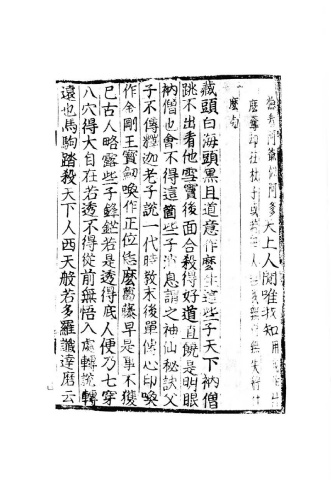 天上人間唯我知
麼句
藏頭白海頭黑且道意作麼生這些子天下衲僧
跳不出看他雪竇後面合殺得好道直饒是明眼
衲僧也會不得這箇些子消息謂之神仙秘訣父
子不傳釋迦老子說一代時教末後單傳心印喚
作金剛王寶劒喚作正位恁麼葛藤早是事不獲
已古人略露些子鋒鋩若是透得底人便乃七穿
八穴得大自在若透不得從前無悟入處轉說轉
遠也馬駒踏殺天下人西天般若多羅讖達磨云